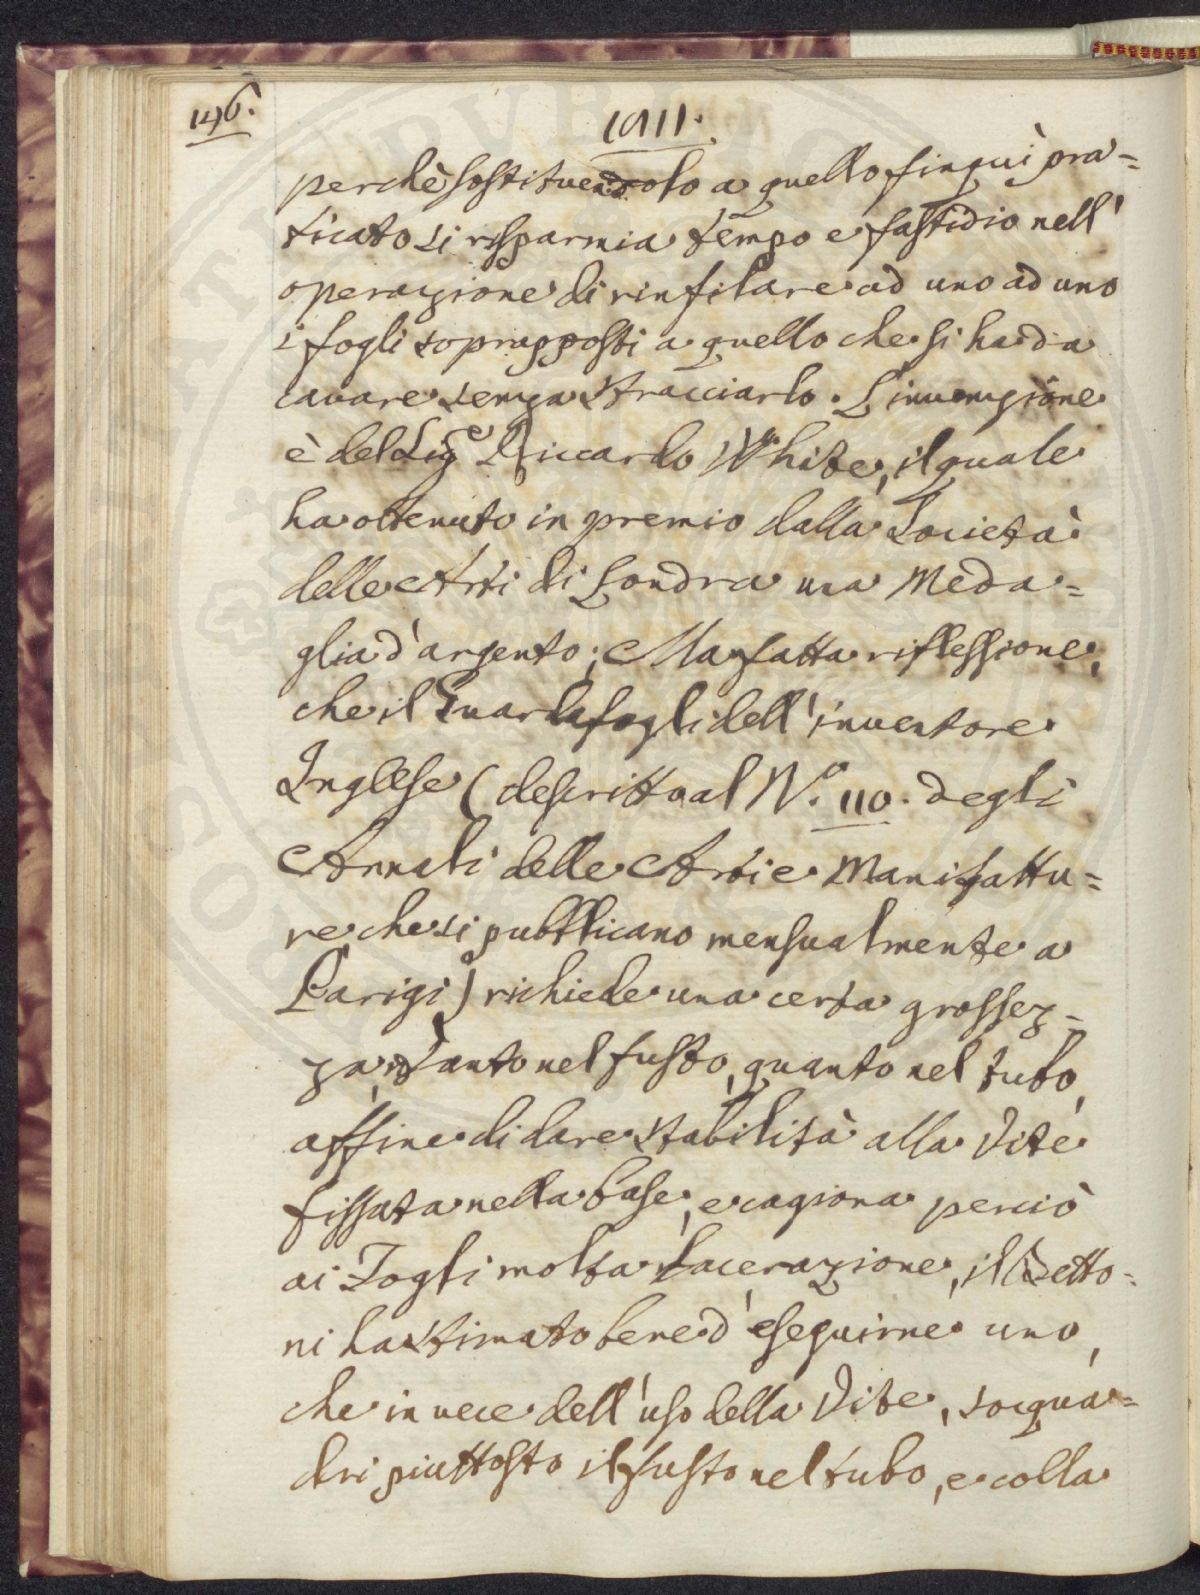 146.
1811.
perchè sostituendolo a quello finquì pra=
ticato si risparmia tempo e fastidio nell'
operazione di rinfilare ad uno ad uno
i fogli soprapposti a quello che si ha da
cavare senza stracciarlo. L'invenzione
è del Sig.e Riccardo White, il quale
ha ottenuto in premio dalla Società
delle Arti di Londra una Meda=
glia d'argento; Ma, fatta riflessione,
che il Guardafogli dell'inventore
Inglese (descritto al N.o 110. degli
Annali delle Arti e Manifattu=
re, che si pubblicano mensualmente a
Parigi) richiede una certa grossez=
za, tanto nel fusto, quanto nel tubo,
affine di dare stabilità alla Vite
fissata nella base, e cagiona perciò
ai Fogli molta lacerazione, il Betto=
ni ha stimato bene d'eseguirne uno,
che in vece dell'uso della Vite, socqua=
dri piuttosto il fusto nel tubo, e colla